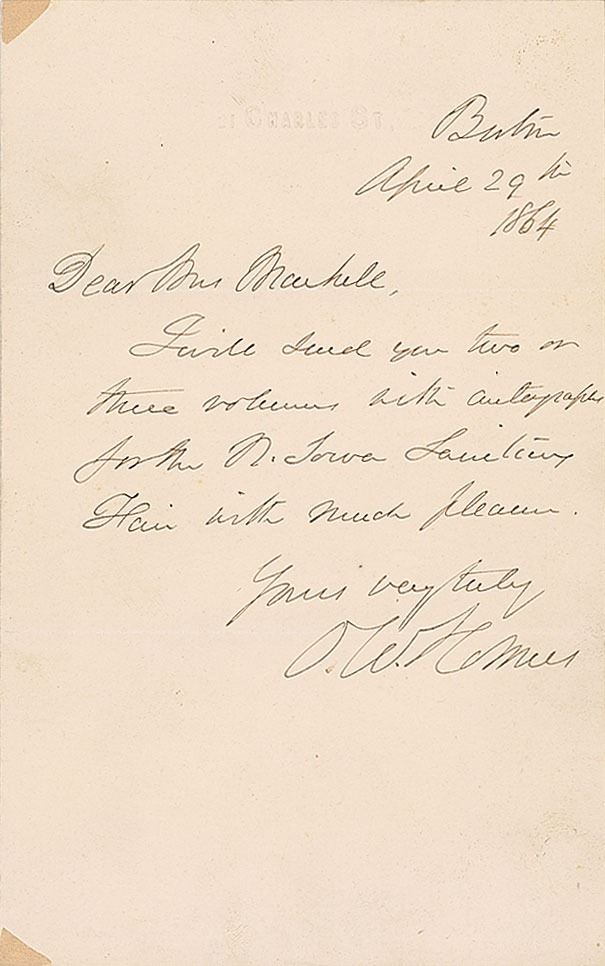 21 CHARLES ST.
Boston
April 29th
1864
Dear Mrs Markell,
I will send you two or
three volumes with autographs
for the N. Iowa Sanitary
Fair with much pleasure.
Yours very truly
O. W. Holmes